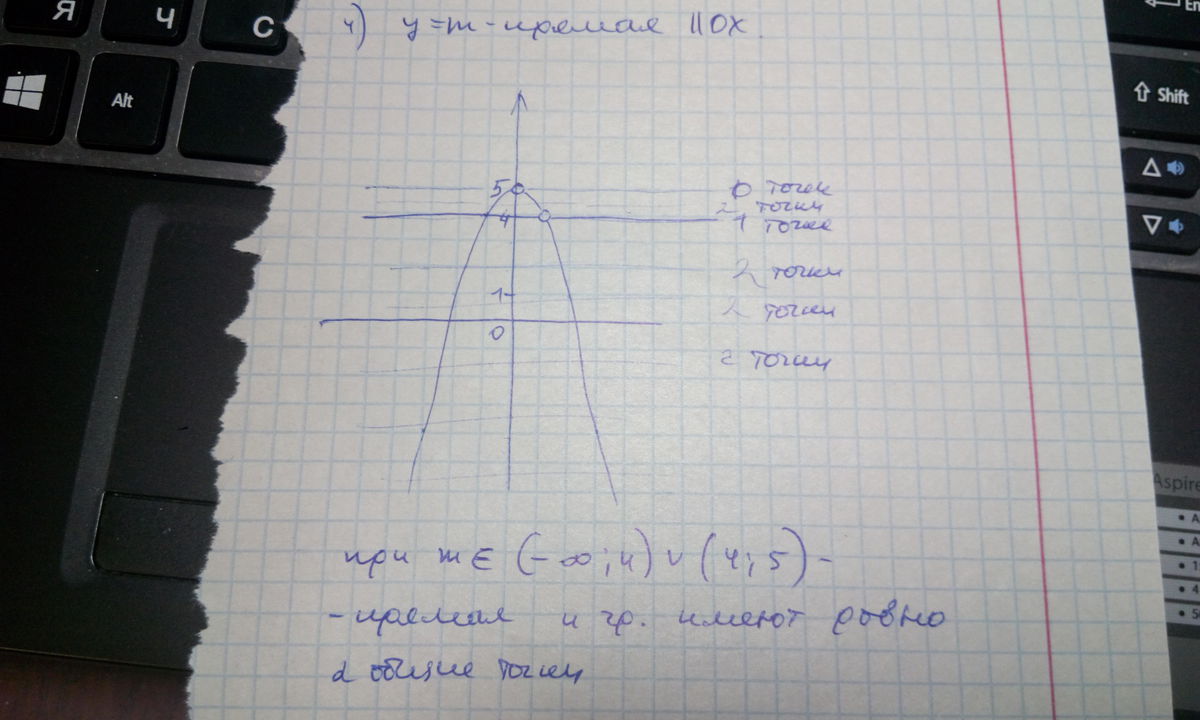 Я Ч С
Alt
En
Shift
Aspire
4) y=m - прямая ||OX.
5
4
1
0
0 точек
2 точки
1 точка
2 точки
2 точки
2 точки
при m ∈ (-∞; 4) ∪ (4; 5) -
- прямая и гр. имеют ровно
2 общие точки